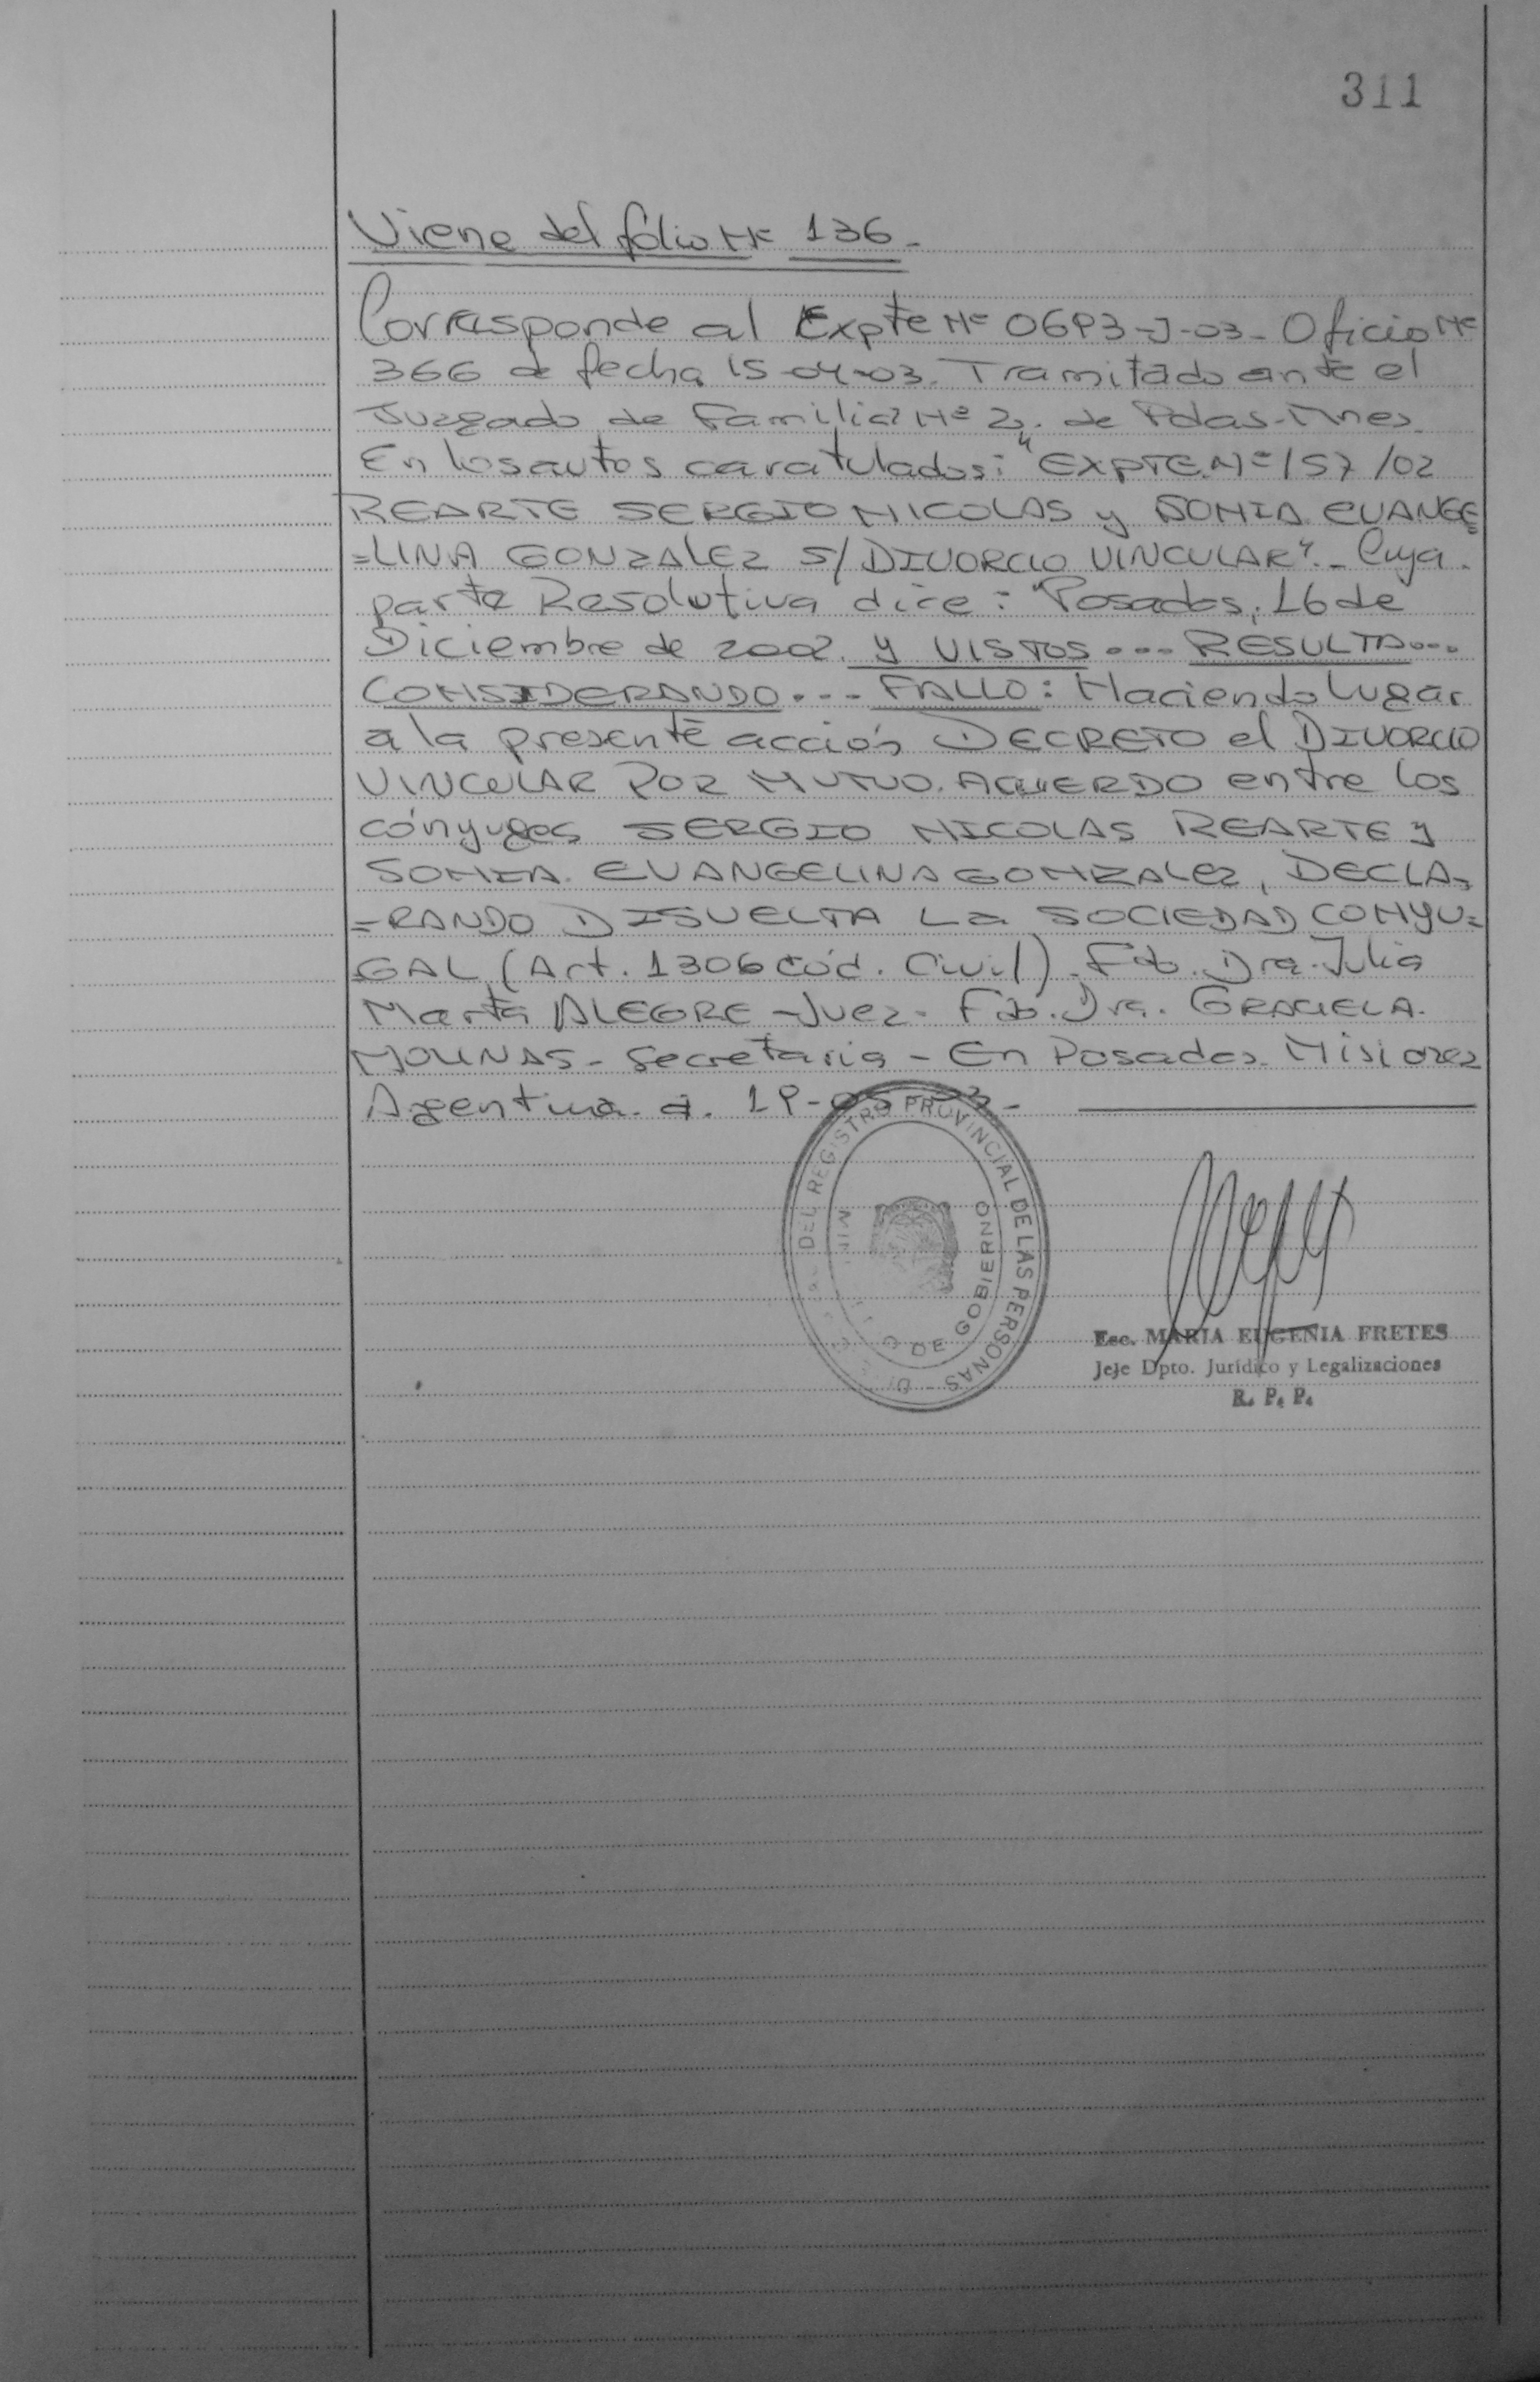 311
Viene del folio Nº 136.-
Corresponde al Expte Nº 0693-J-03- Oficio Nº
366 de fecha 15-04-03. Tramitado ante el
Juzgado de Familia Nº 2, de Pdas-Mnes.
En los autos caratulados: "EXPTE. Nº 157/02
REARTE SERGIO NICOLAS y SONIA EVANGE=
=LINA GONZALEZ S/DIVORCIO VINCULAR".- Cuya
parte Resolutiva dice: "Posadas, 16 de
Diciembre de 2002. Y VISTOS .... RESULTA....
CONSIDERANDO.... FALLO: Haciendo lugar
a la presente acción DECRETO el DIVORCIO
VINCULAR POR MUTUO ACUERDO entre los
cónyuges SERGIO NICOLAS REARTE y
SONIA EVANGELINA GONZALEZ, DECLA=
=RANDO DISUELTA La SOCIEDAD CONYU=
GAL (Art. 1306 Cód. Civil). Fdo. Dra. Julia
Marta ALEGRE - Juez. Fdo. Dra. GRACIELA
MOLINAS - Secretaria - En Posadas. Misiones
Argentina. a. 19-05-
DEL REGISTRO PROVINCIAL DE LAS PERSONAS
DE GOBIERNO
Esc. MARIA EUGENIA FRETES
Jefe Dpto. Jurídico y Legalizaciones
R. P. P.